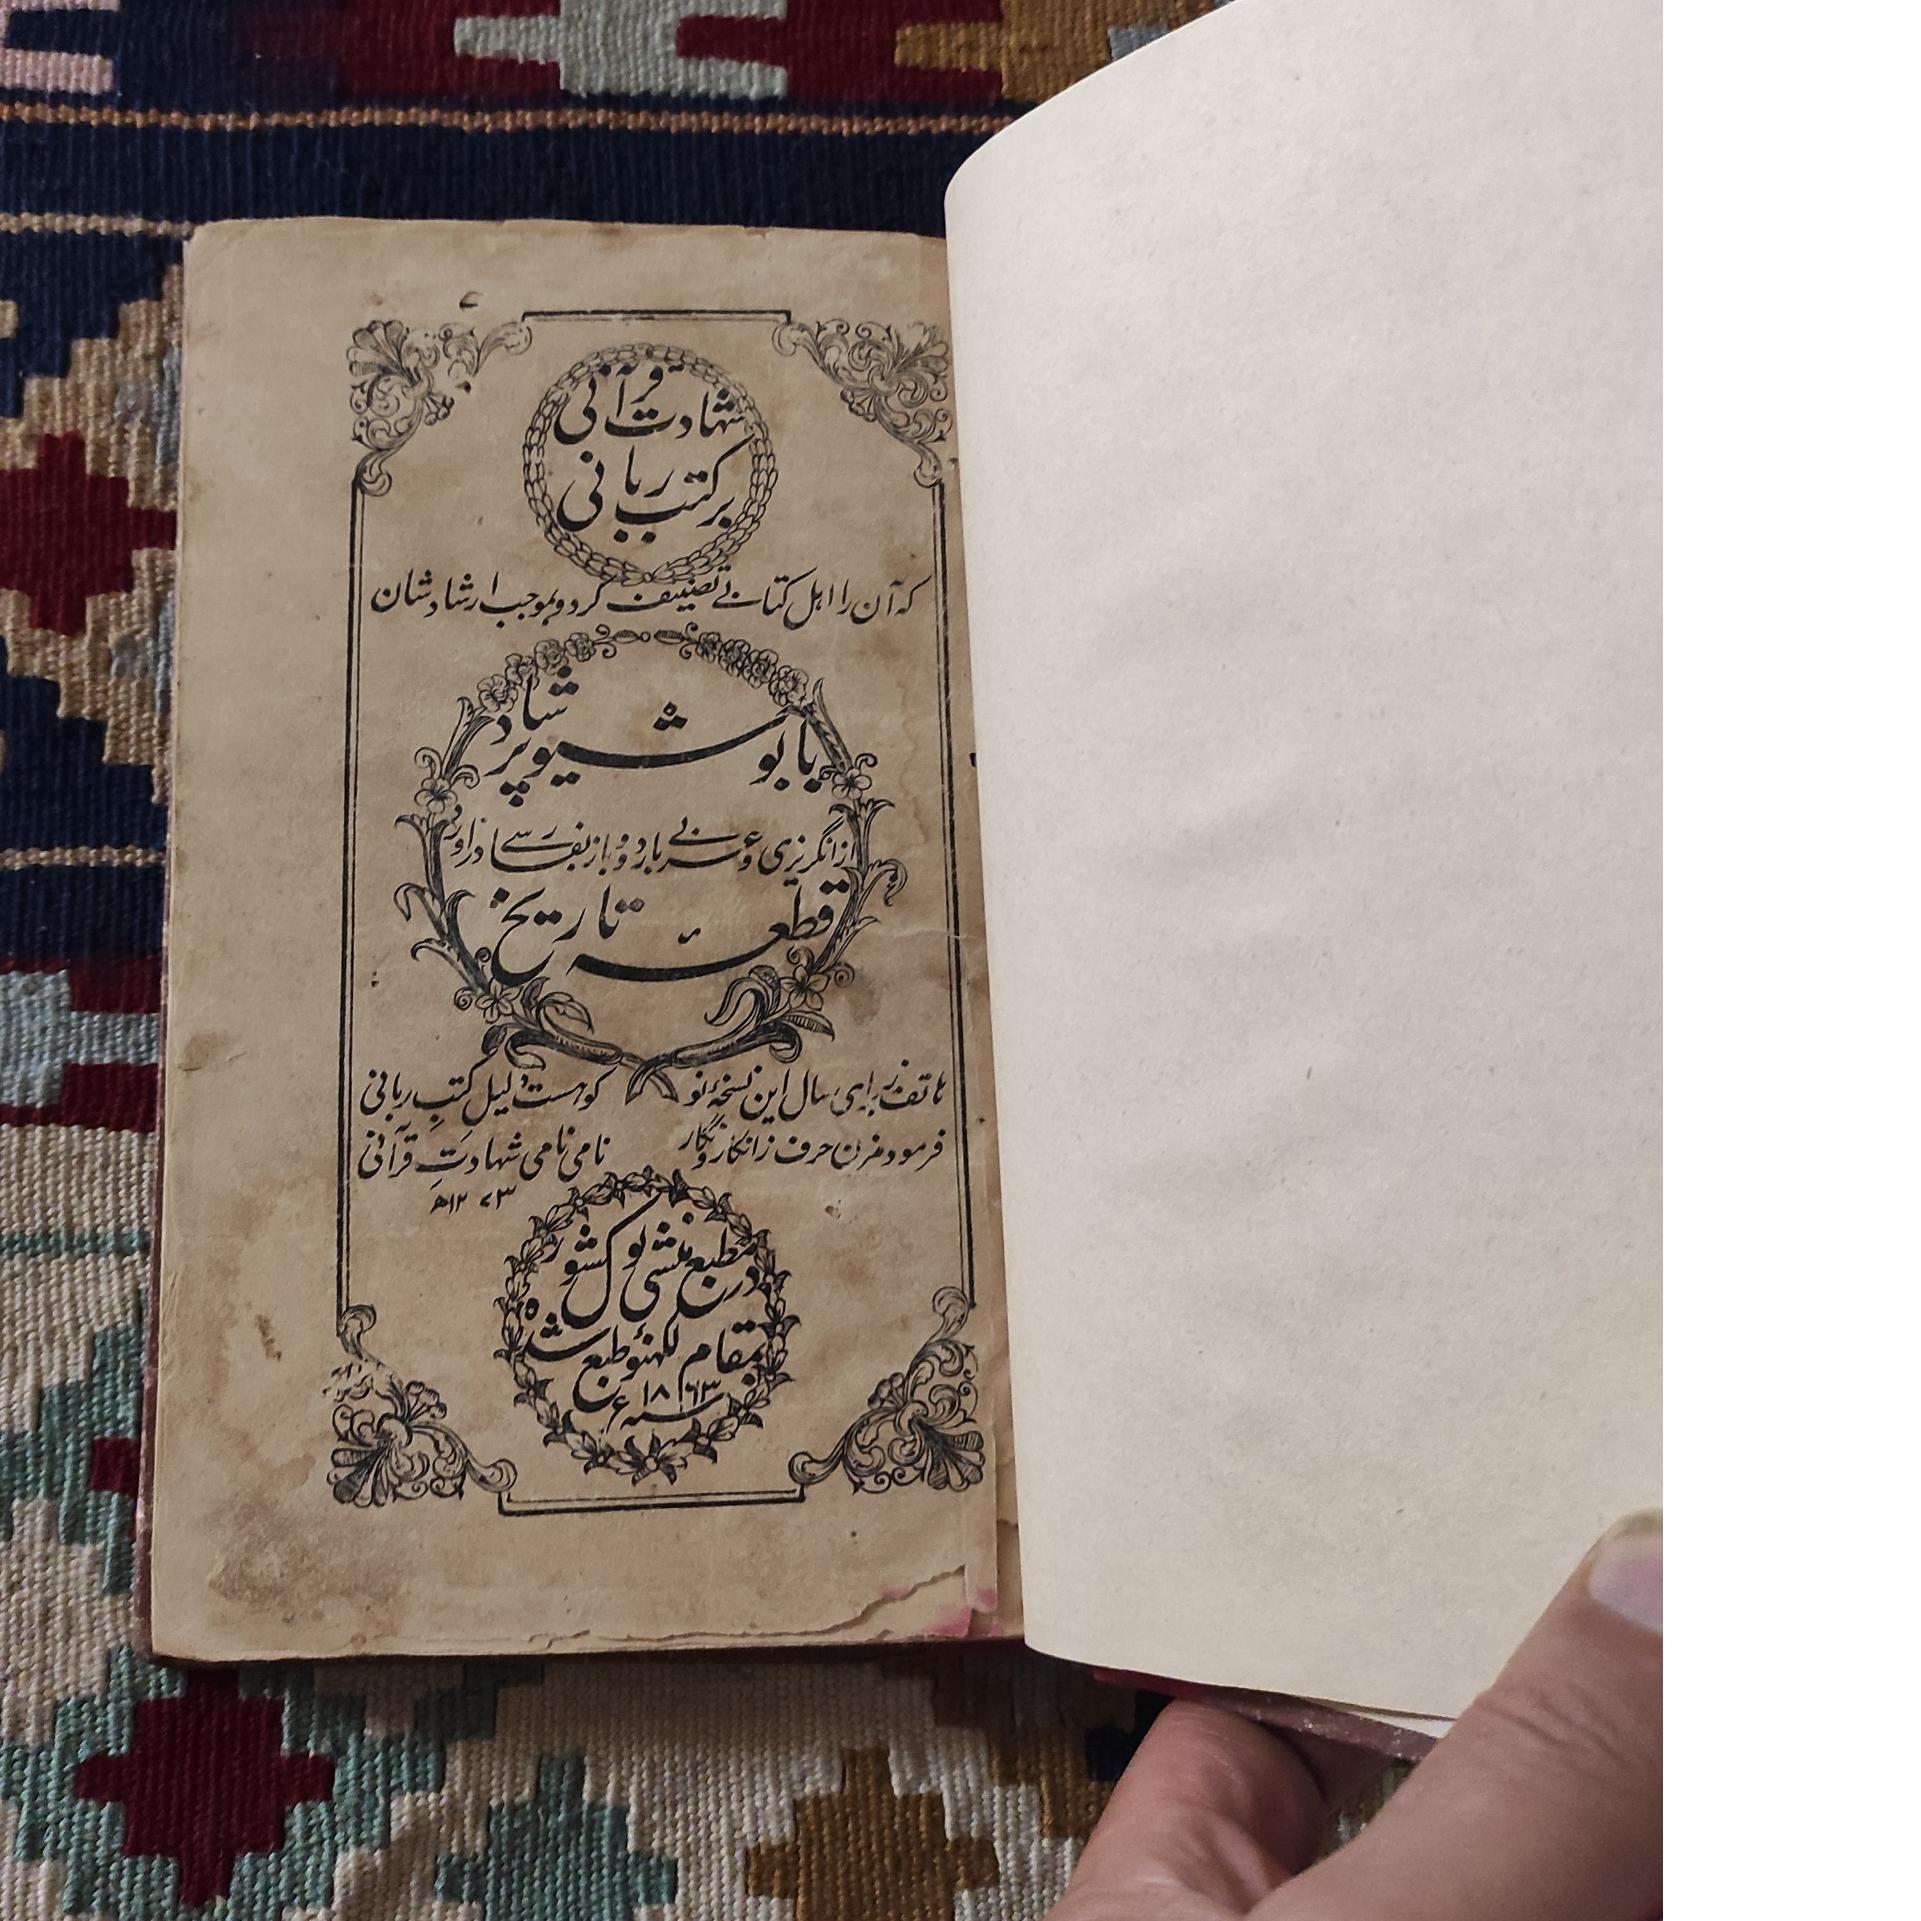 شهادت قرآنی
بر کتب ربانی
که آن را اهل کتابے تصنیف کرد و بموجب ارشاد شان
بابو شیو پرشاد
از انگریزی و عربی باردو و باز بفارسے در آورد
قطعہ تاریخ
هاتف ز برای سال این نسخهٔ نو کو هست دلیل کتبِ ربانی
فرمود مزن حرف ز انکار و نگار نامی نامی شهادتِ قرآنی
۱۲۷۳ھ
در مطبع منشی نو کشور
بمقام لکهنؤ طبع شده
سنہ ۱۸۶۳ء